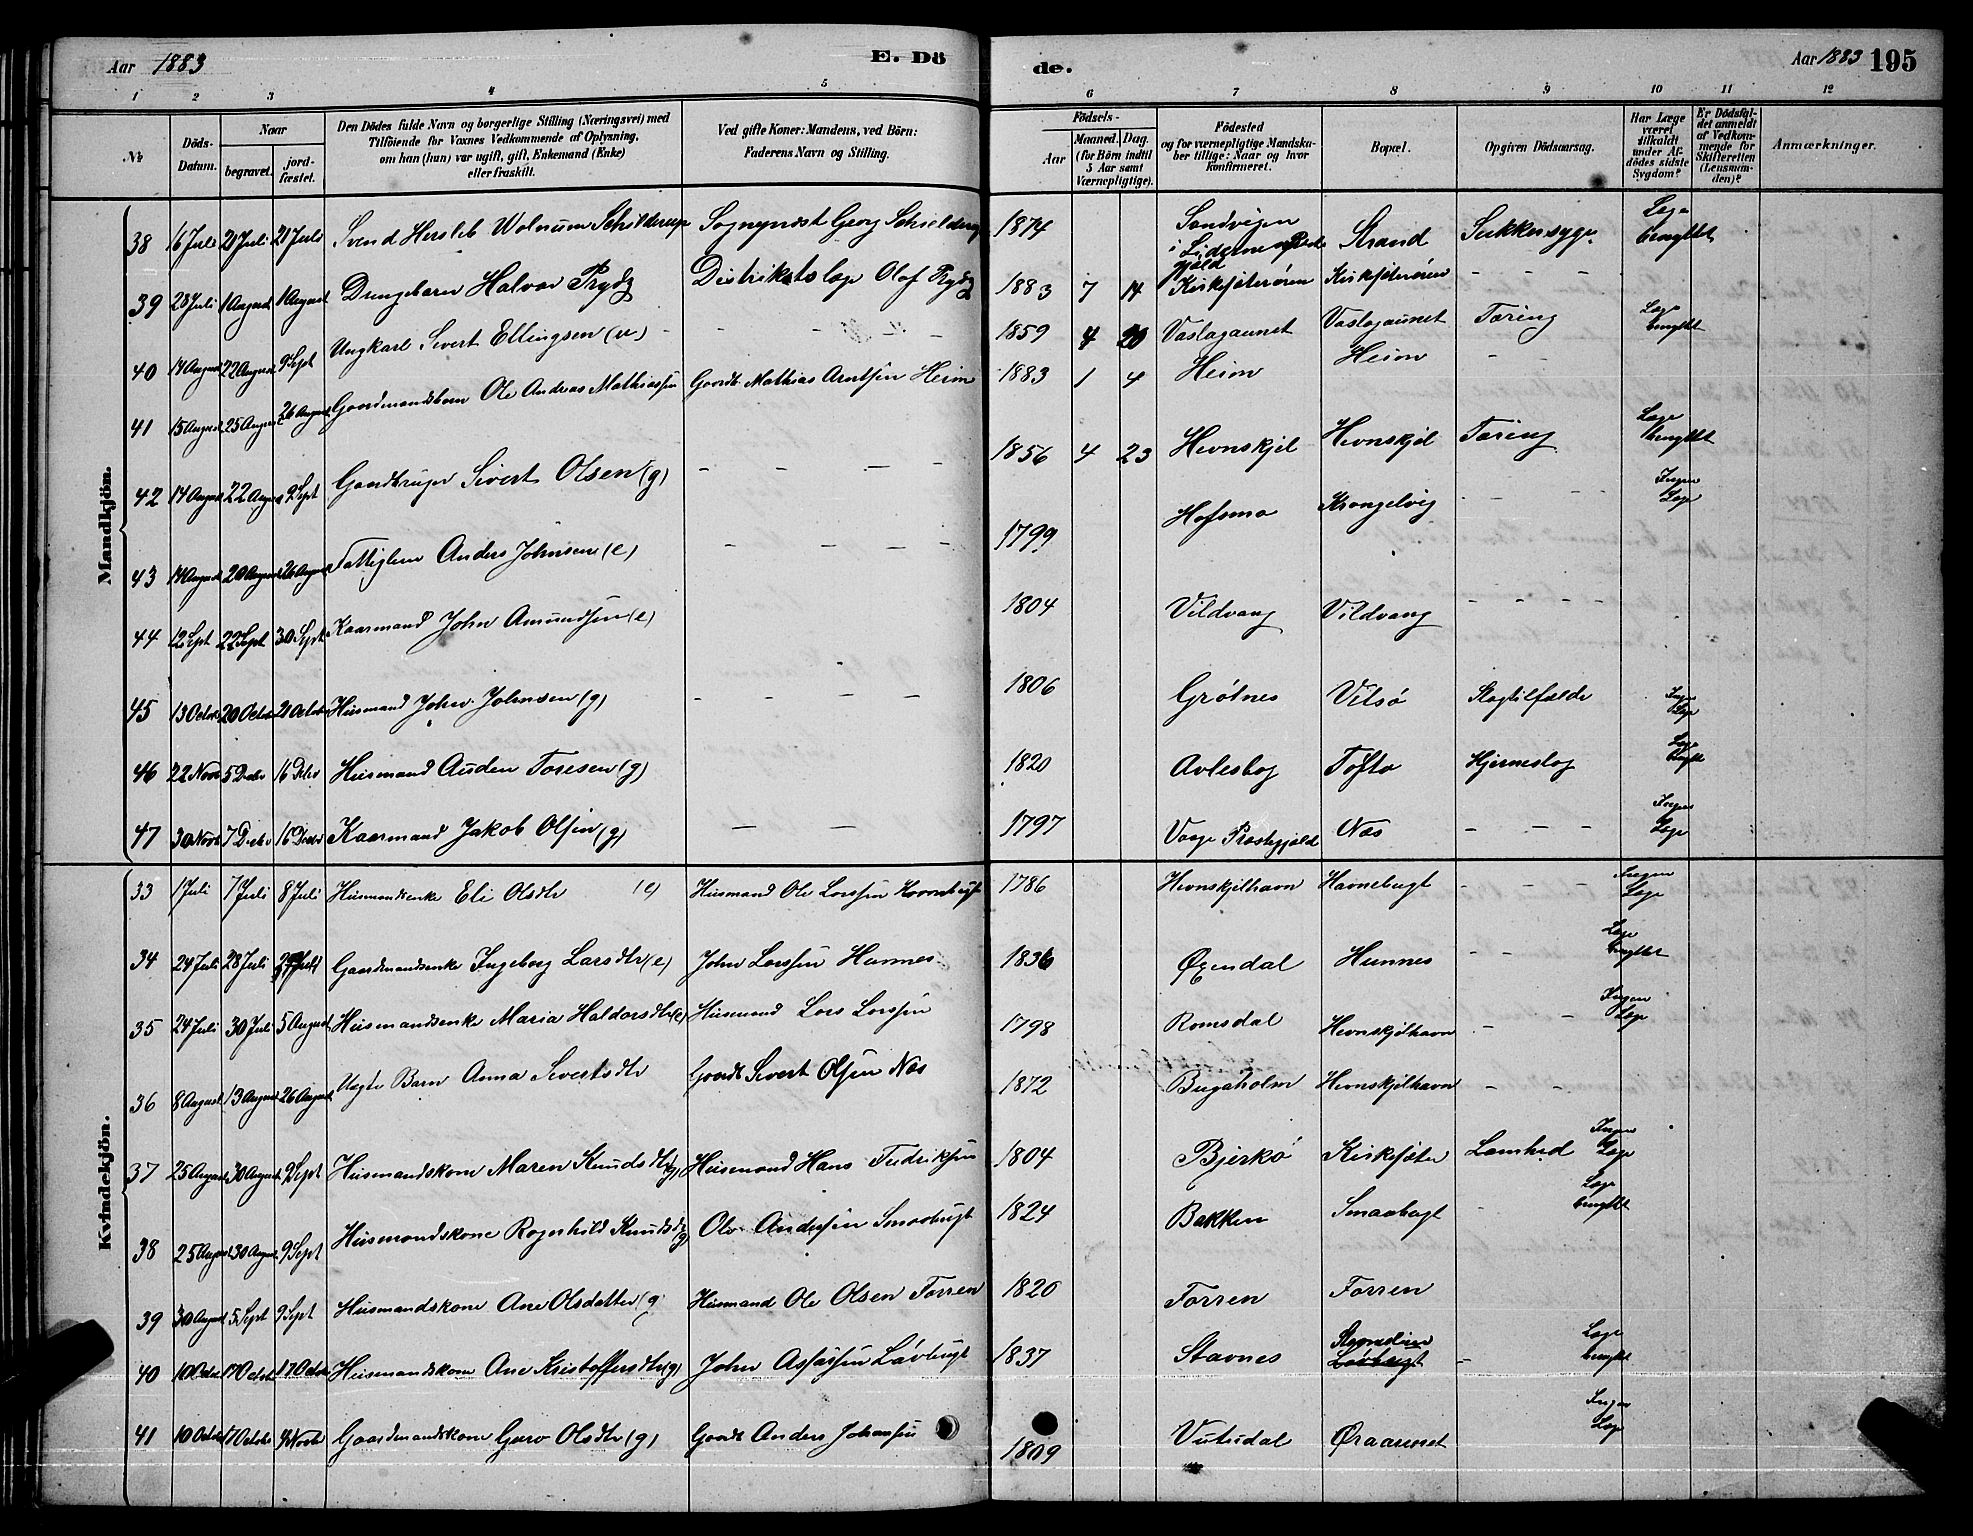 Aar 1883
E. Dö
de.
Aar 1883 195
1 2 3 4 5 6 7 8 9 10 11 12
№
Döds-
Datum.
Naar
begravet.
jord-
fæstet.
Den Dödes fulde Navn og borgerlige Stilling (Næringsvei) med
Tilföiende for Voxnes Vedkommende af Oplysning,
om han (hun) var ugift, gift, Enkemand (Enke)
eller fraskilt.
Ved gifte Koner: Mandens, ved Börn:
Faderens Navn og Stilling.
Födsels-
Aar
Maaned. Dag.
(for Börn indtil
5 Aar samt
Værnepligtige).
Födested
og for værnepligtige Mandska-
ber tillige: Naar og hvor
konfirmeret.
Bopæl.
Opgiven Dödsaarsag.
Har Læge
været
tilkaldt
under Af-
dödes sidste
Sygdom?
Er Dödsfal-
det anmeldt
af Vedkom-
mende for
Skifteretten
(Lensman-
den)?
Anmærkninger.
Mandkjön.
38 16 Juli 21 Juli 21 Juli Svend Hersleb Wolnum Schilderup Sogneprest Georg Schielderup 1874 Sandvigen i Strand Sukkersyge Læge benyttet
39 28 Juli 1 August 1 August Drengebarn Halvor Prydz Distriktslæge Olaf Prydz 1883 7 14 Kirksæterøren Kirksæterøren - - - -
40 14 August 22 August 9 Sept Ungkarl Sivert Ellingsen (u) - - - 1859 4 20 Vaslagaunet Vaslagaunet Tæring Læge benyttet
41 15 August 25 August 26 August Gaardmandsbarn Ole Andreas Mathiassen Gaardb. Mathias Arntsen Heim 1883 1 4 Heim Heim - -
42 14 August 22 August 9 Sept Gaardbruger Sivert Olsen (g) - - - - 1856 4 23 Hevnskjel Hevnskjel Tæring Læge benyttet
43 14 August 20 August 26 August Fattiglem Anders Johnsen (e) - - - - 1799 Hofsmo Krongelvig - - Ingen Læge
44 12 Sept 22 Sept 30 Sept Kaarmand John Amundsen (e) 1804 Vildvang Vildvang - - - -
45 13 Octbr 20 Octbr 21 Octbr Husmand John Johnsen (g) - - - - 1806 Grötnes Vilsö Slagtilfælde Ingen Læge
46 22 Novb 5 Decbr 16 Decbr Husmand Auden Toresen (g) 1820 Avleshog Tofto Hjerneslag Læge benytt
47 30 Novb 7 Decbr 16 Decbr Kaarmand Jakob Olsen (g) - - 1797 Vaage Præstegjæld Næs - - - Ingen Læge
Kvindekjön.
33 1 Juli 7 Juli 8 Juli Husmandsenke Eli Olsdtr (e) Husmand Ole Larssen Havnebugt 1786 Hevnskjelhavn Havnebugt - - - Ingen Læge
34 24 Juli 28 Juli 29 Juli Gaardmandsenke Ingeborg Larsdtr (e) John Larssen Hamnes 1836 Øxendal Hamnes - - Læge benyttet
35 24 Juli 30 Juli 5 August Husmandsenke Maria Haldorsdtr (e) Husmand Lars Larssen 1798 Romsdal Hevnskjelhavn - - Ingen Læge
36 8 August 13 August 26 August Uægte Barn Anna Sivertsdtr Gaardb Sivert Olsen Næs 1872 Bugaholm Hevnskjelhavn - -
37 25 August 30 August 9 Sept Husmandskone Maren Knudsdtr (g) Husmand Hans Fredriksen 1804 Bjerkö Kirksæter Lamhed Ingen Læge
38 25 August 30 August 9 Sept Husmandskone Ragnhild Knudsdtr (g) Ole Andersen Smaabugt 1824 Bakken Smaabugt - Læge benyttet
39 30 August 5 Sept 9 Sept Husmandskone Ane Olsdatter (g) Husmand Ole Olsen Torren 1820 Torren Torren
40 10 Octbr 17 Octbr 17 Octbr Husmandskone Ane Kristoffersdtr (g) John Lövbugt 1837 Stavnes Lövbugt - Læge benyttet
41 10 Octbr 17 Octbr 4 Novbr Gaardmandskone Guro Olsdtr (g) Gaardb Anders Johansen 1809 Vutudal Øraarenet Ingen Læge